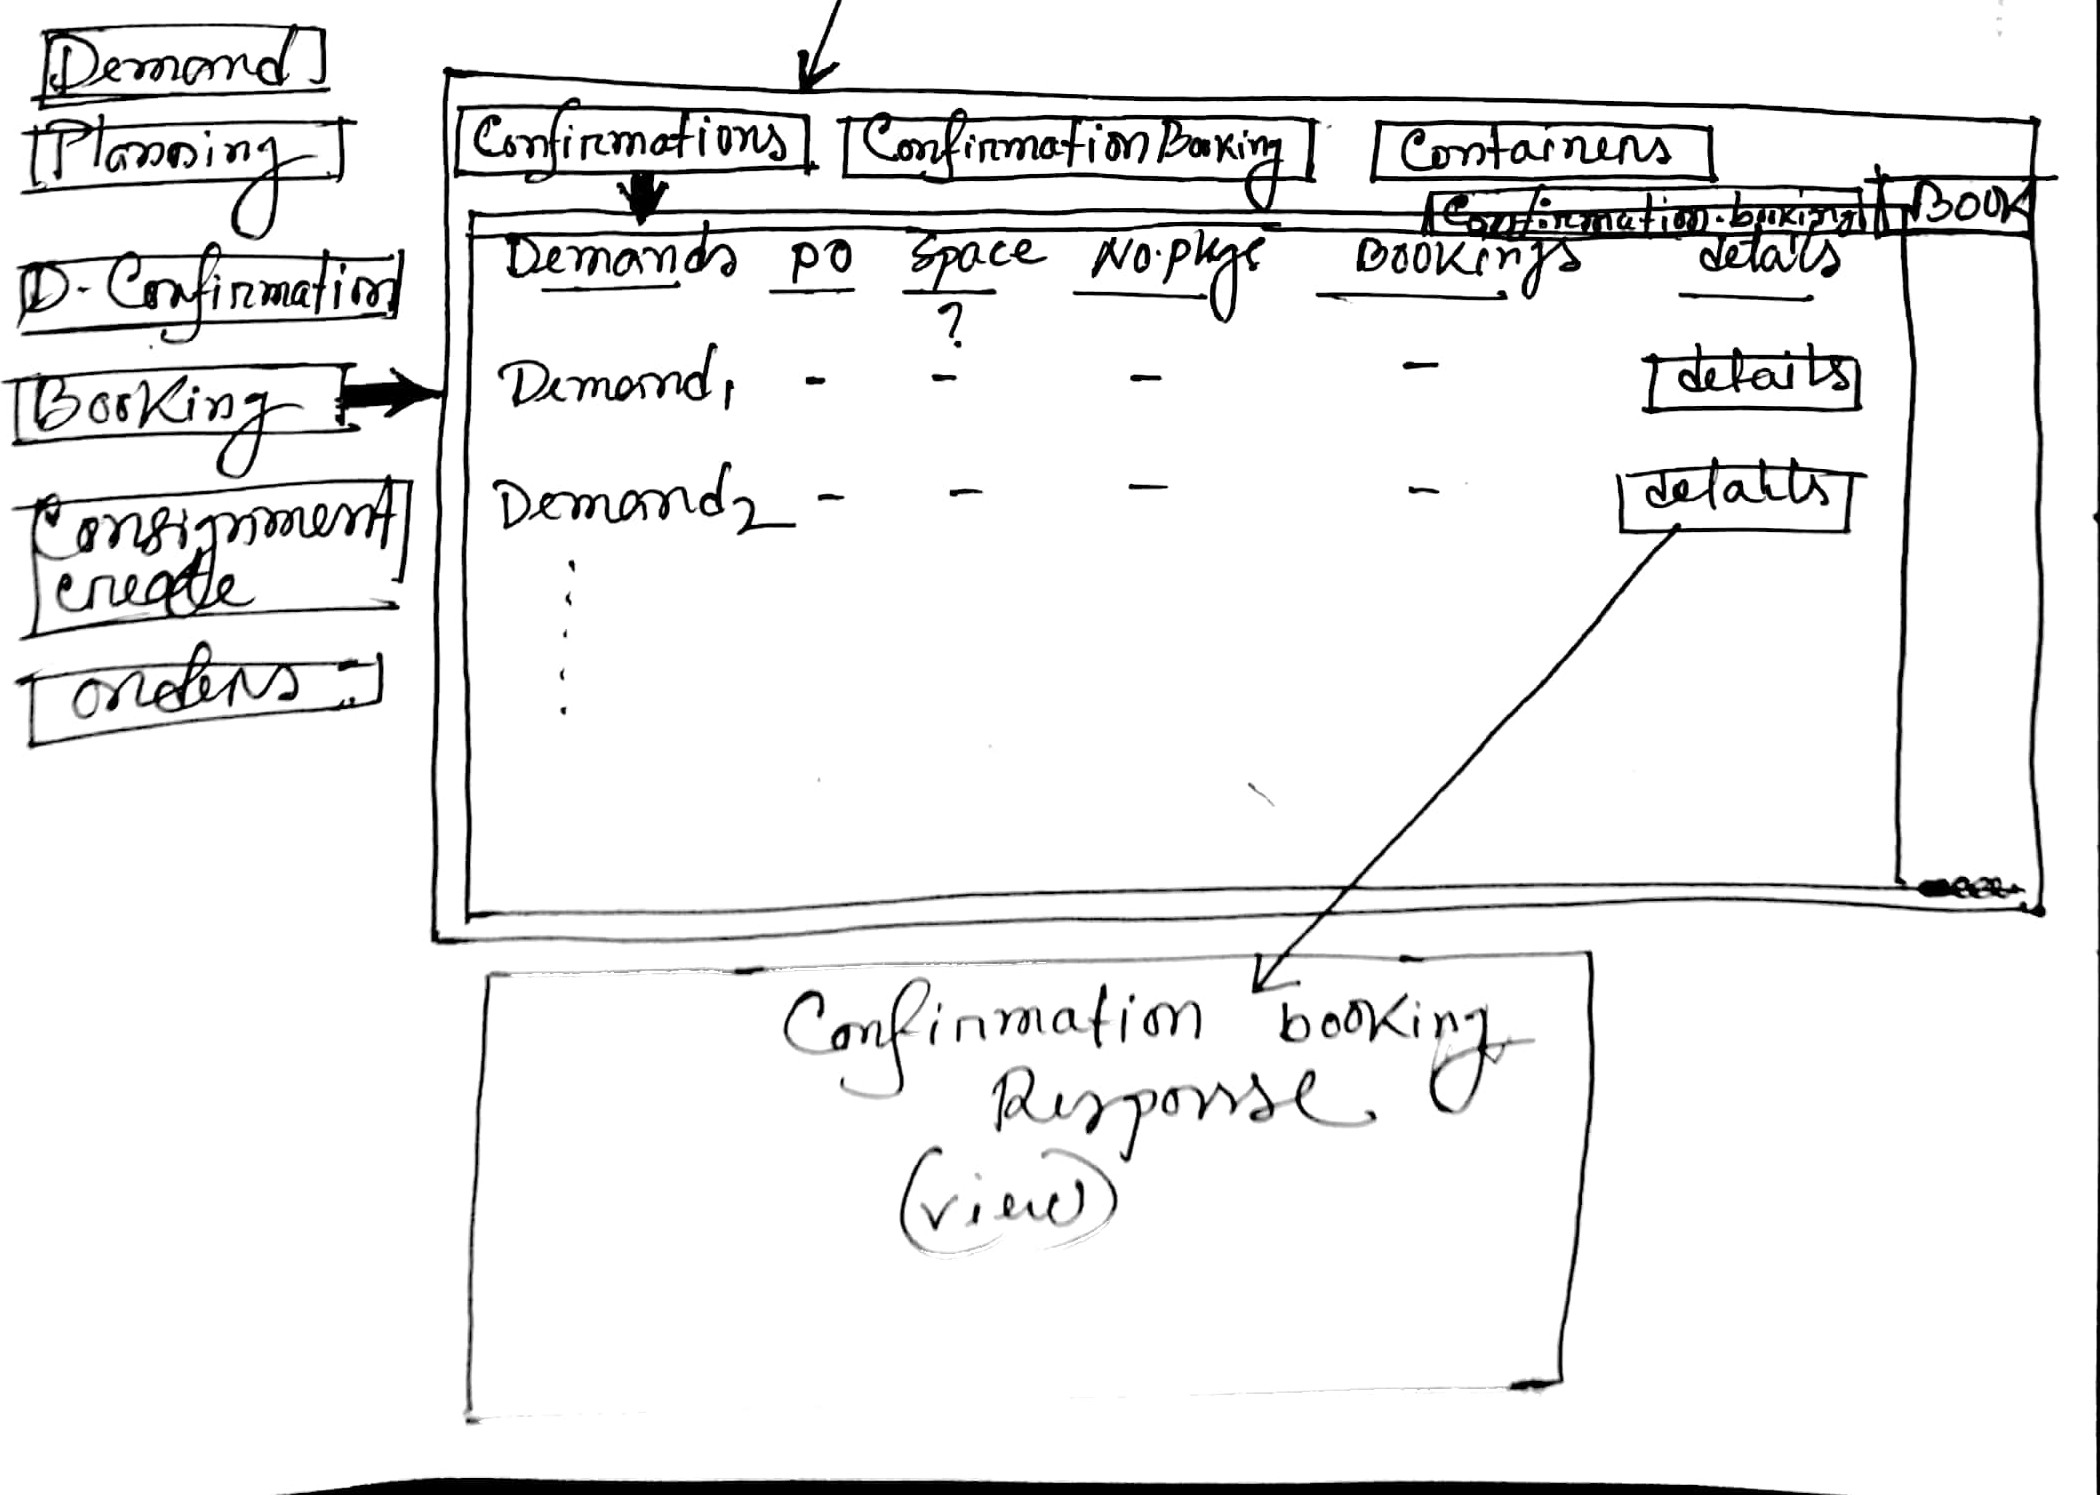 Demand
Planning
D-Confirmation
Booking
Consignment
create
orders
Confirmations
Confirmation Booking
Containers
Confirmation-booking
BOOK
Demands PO Space No.pkgs Bookings details
?
Demand1 - - - - details
Demand2 - - - - details
Confirmation booking
Response
(view)